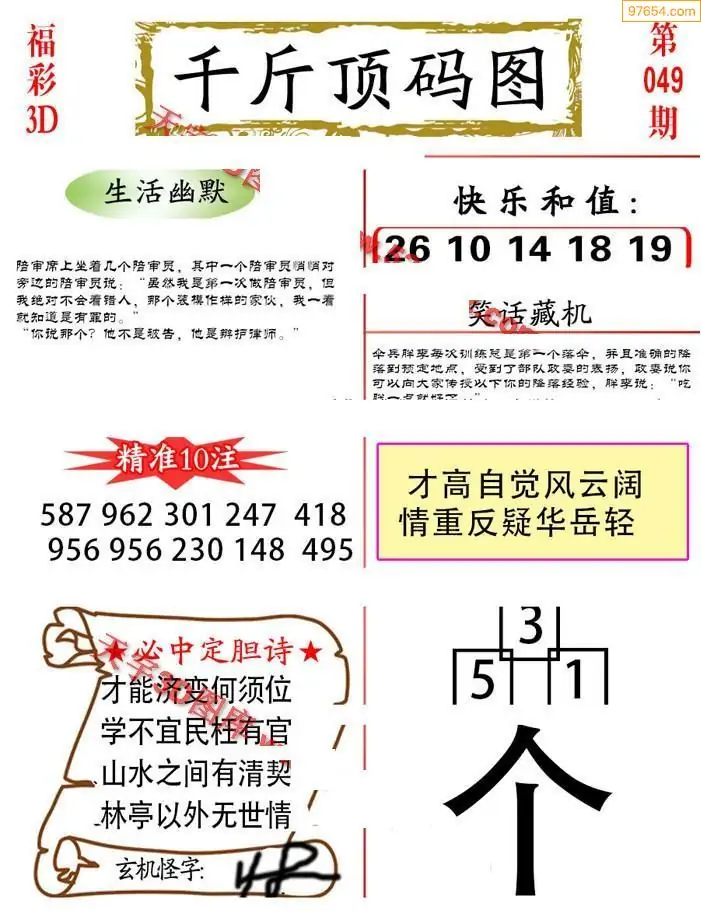 97654.com
福彩3D
千斤顶码图
第049期
生活幽默
陪审席上坐着几个陪审员，其中一个陪审员悄悄对
旁边的陪审员说：“虽然我是第一次做陪审员，但
我绝对不会看错人，那个装模作样的家伙，我一看
就知道是有罪的。”
“你说那个？他不是被告，他是辩护律师。”
快乐和值：
26 10 14 18 19
笑话藏机
伞兵胖李每次训练总是第一个落伞，并且准确的降
落到预定地点，受到了部队政委的表扬，政委说你
可以向大家传授以下你的降落经验，胖李说：“吃
胖一点就好了。”
精准10注
587 962 301 247 418
956 956 230 148 495
才高自觉风云阔
情重反疑华岳轻
★必中定胆诗★
才能济变何须位
学不宜民枉有官
山水之间有清契
林亭以外无世情
玄机怪字:
3
5 1
个